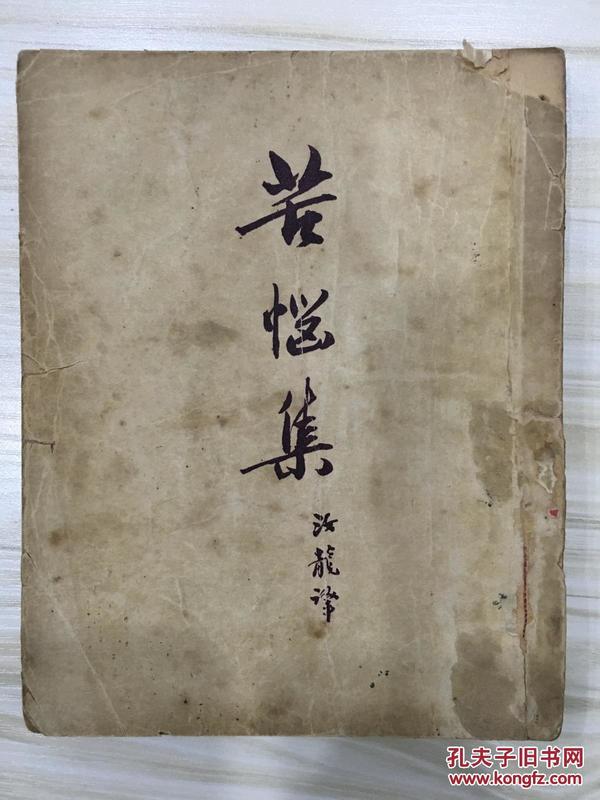 苦惱集
汝龍譯
孔夫子旧书网
www.kongfz.com